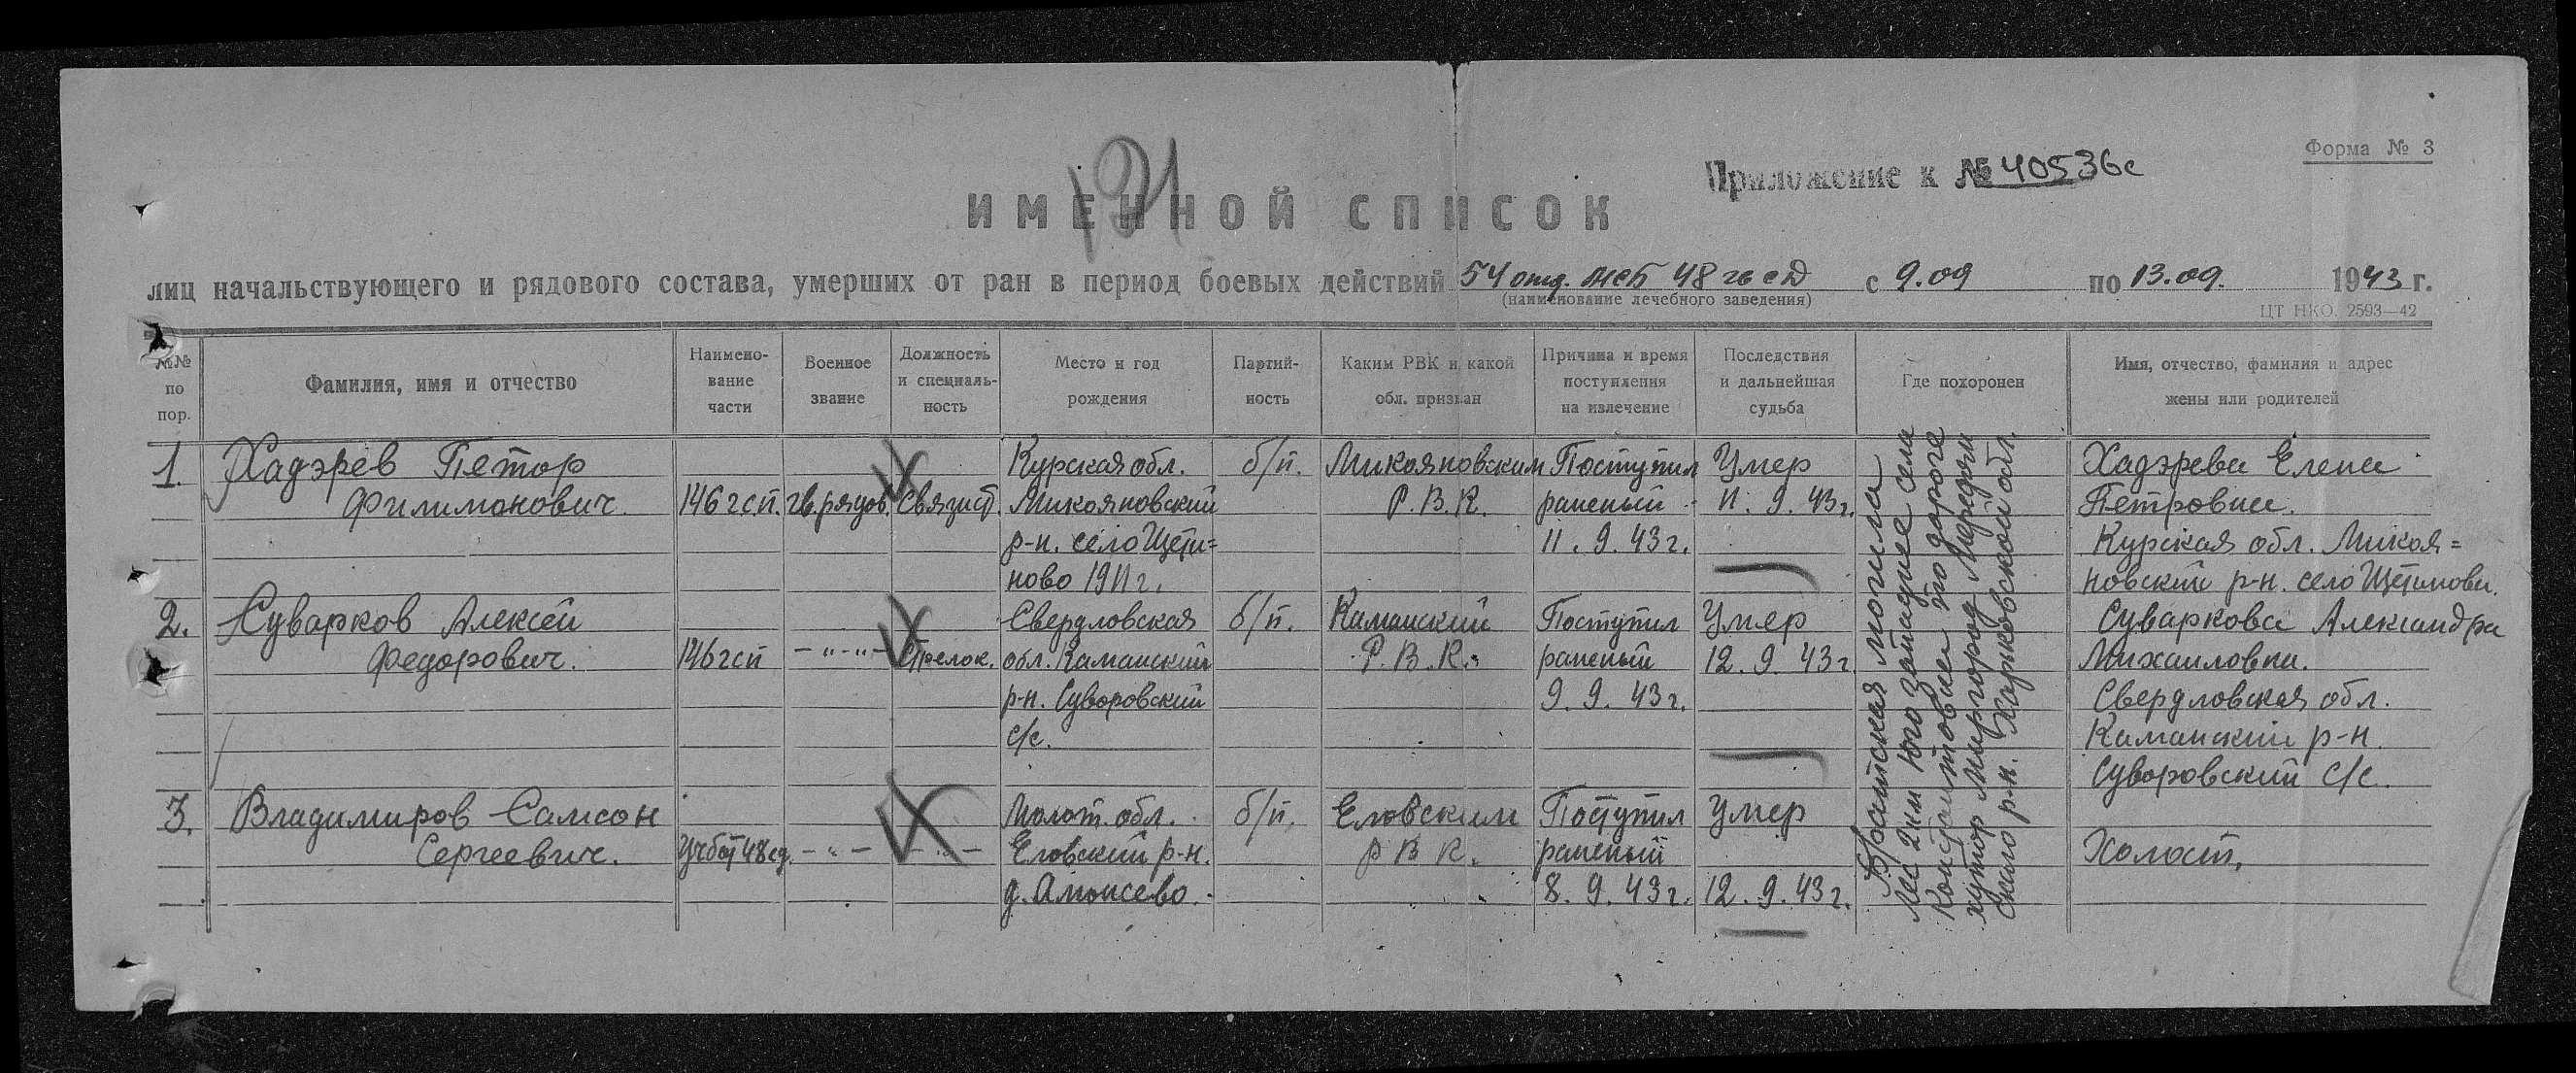 Форма № 3
Приложение к № 40536с
191
ИМЕННОЙ СПИСОК
лиц начальствующего и рядового состава, умерших от ран в период боевых действий 54 отд. мсб 48 гв сд с 9.09 по 13.09. 1943 г.
(наименование лечебного заведения)
ЦТ НКО. 2593—42
№№ по пор.
Фамилия, имя и отчество
Наимено-
вание
части
Военное
звание
Должность
и специаль-
ность
Место и год
рождения
Партий-
ность
Каким РВК и какой
обл. призван
Причина и время
поступления
на излечение
Последствия
и дальнейшая
судьба
Где похоронен
Имя, отчество, фамилия и адрес
жены или родителей
1.
Хадэрев Петор
Филимонович.
146 гсп.
гв.рядов.
Связист.
Курская обл.
Микояновский
р-н. село Щети=
ново 1911 г.
б/п.
Микояновским
Р.В.К.
Поступил
раненый
11.9.43г.
Умер
11.9.43г.
Хадэрева Елена
Петровна.
Курская обл. Микоя=
новский р-н. село Щетинова.
2.
Суварков Алексей
Федорович.
146гсп
-"-"-
Стрелок.
Свердловская
обл. Каманский
р-н. Суворовский
с/с.
б/п.
Каманский
Р.В.К.
Поступил
раненый
9.9.43г.
Умер
12.9.43г
Суваркова Александра
Михаиловна.
Свердловская обл.
Каманский р-н.
Суворовский с/с.
3.
Владимиров Самсон
Сергеевич.
Учбат 48сд.
-"-
-"-
Молот. обл.
Еловский р-н.
д.
б/п.
Еловским
Р В К.
Поступил
раненый
8.9.43г.
Умер
12.9.43г.
Холост.
Братская могила
Лес 2км юго западнее села
по дороге
хутор Миргород Мерефян
ского р-н. Харьковской обл.